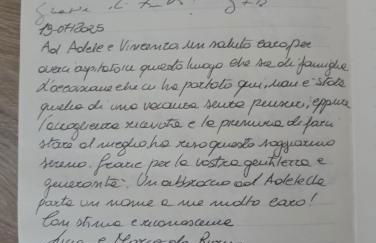 19-07-2025
Ad Adele e Vincenzo un saluto caro per
averci ospitato in questo luogo che sa di famiglia
L'occasione che ci ha portato qui, non è stata
quella di una vacanza senza pensieri, eppure
l'accoglienza ricevuta e la premura di farci
stare al meglio ha reso questo soggiorno
sereno. Grazie per la vostra gentilezza e
generosità. Un abbraccio ad Adele che
porta un nome a me molto caro!
Con stima e riconoscenza
e